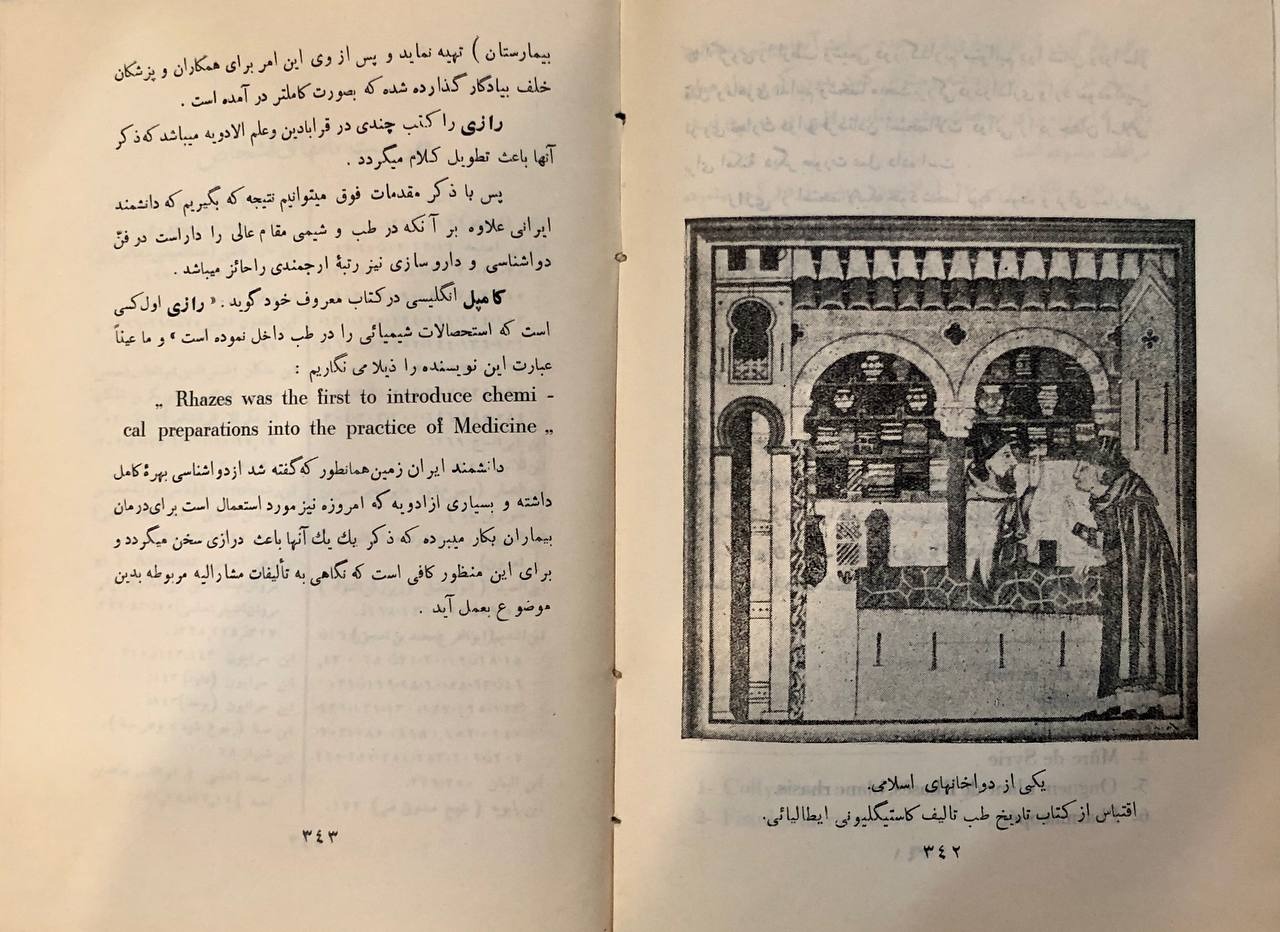 یکی از دواخانهای اسلامی.
اقتباس از کتاب تاریخ طب تالیف کاستیگلیونی ایطالیائی.
۳٤۲
بیمارستان ) تهیه نماید و پس از وی این امر برای همکاران و پزشکان
خلف بیادگار گذارده شده که بصورت کاملتر در آمده است .
رازی را کتب چندی در قرابادین وعلم الادویه میباشد که ذکر
آنها باعث تطویل کلام میگردد .
پس با ذکر مقدمات فوق میتوانیم نتیجه که بگیریم که دانشمند
ایرانی علاوه بر آنکه در طب و شیمی مقام عالی را داراست در فنّ
دواشناسی و دارو سازی نیز رتبهٔ ارجمندی را حائز میباشد .
کامپل انگلیسی در کتاب معروف خود گوید . « رازی اول کسی
است که استحصالات شیمیائی را در طب داخل نموده است » و ما عیناً
عبارت این نویسنده را ذیلا می نگاریم :
„ Rhazes was the first to introduce chemi -
cal preparations into the practice of Medicine „
دانشمند ایران زمین همانطور که گفته شد ازدواشناسی بهرهٔ کامل
داشته و بسیاری از ادویه که امروزه نیز مورد استعمال است برای درمان
بیماران بکار میبرده که ذکر یك یك آنها باعث درازی سخن میگردد و
برای این منظور کافی است که نگاهی به تألیفات مشارالیه مربوطه بدین
موضوع بعمل آید .
۳٤۳